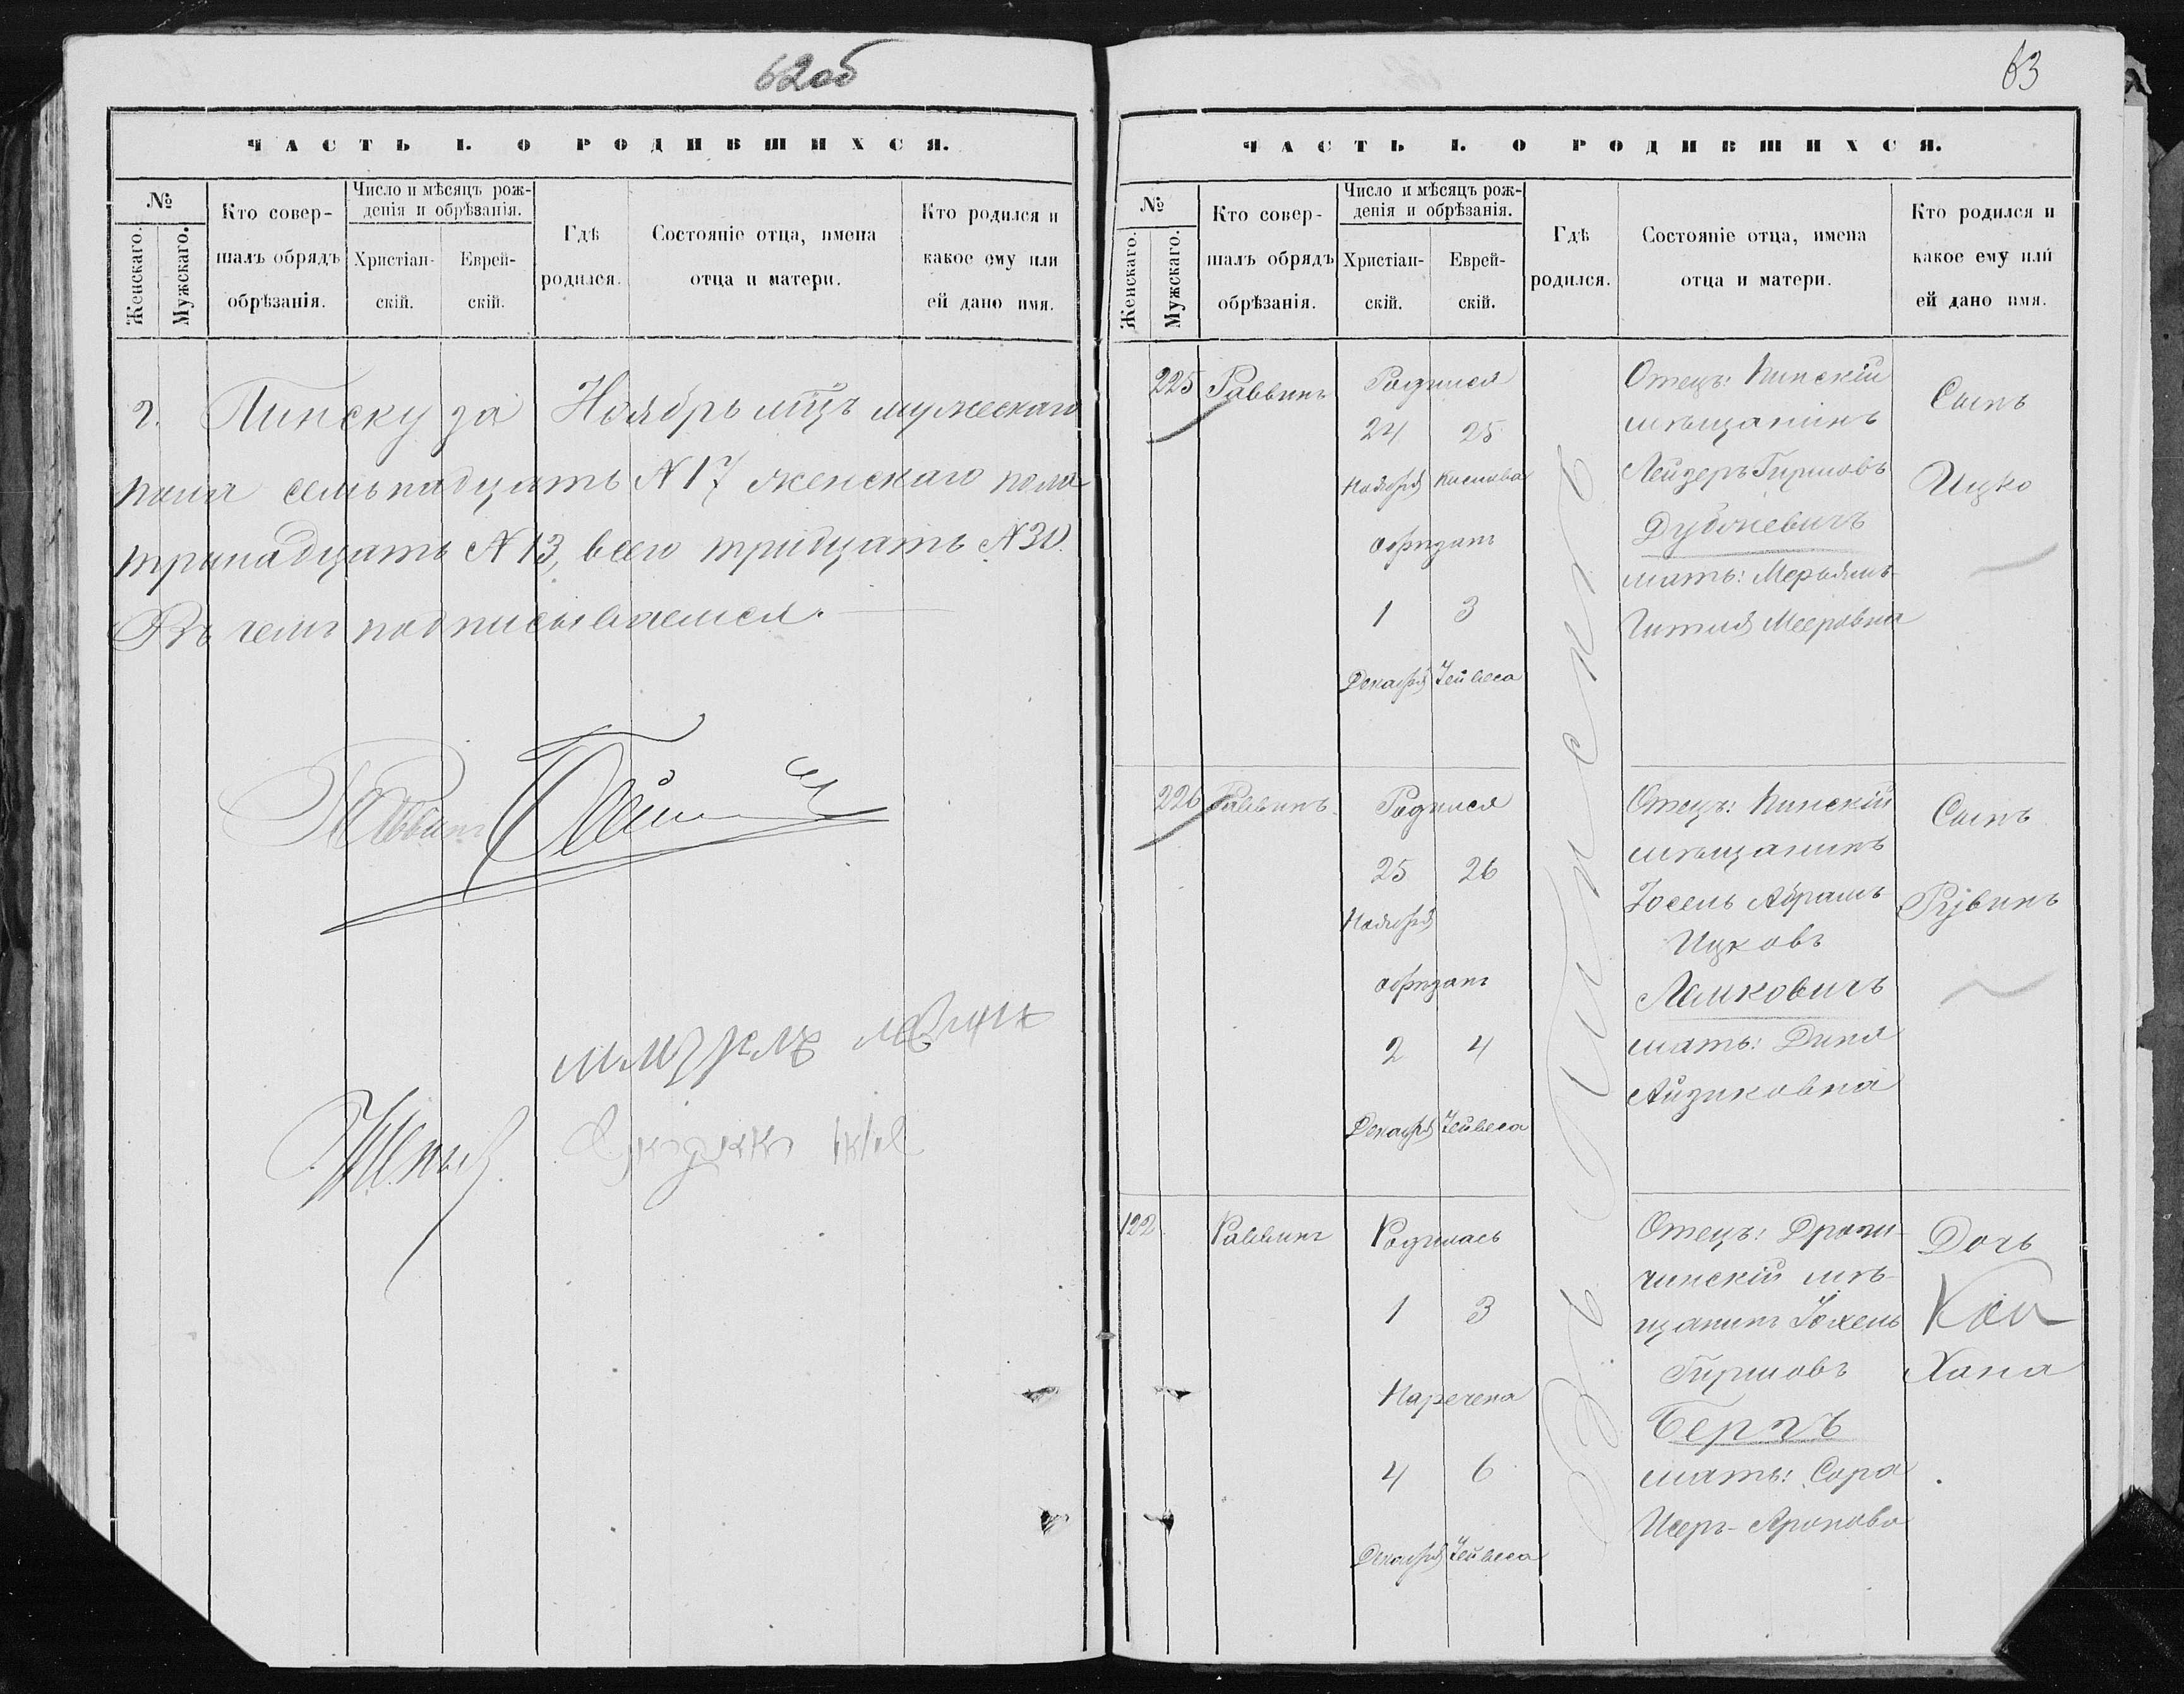 62 об
ЧАСТЬ I. О РОДИВШИХСЯ.
№
Женскаго.
Мужскаго.
Кто совер-
шалъ обрядъ
обрѣзанія.
Число и мѣсяцъ рож-
денія и обрѣзанія.
Христіан-
скій.
Еврей-
скій.
Гдѣ
родился.
Состояніе отца, имена
отца и матери.
Кто родился и
какое ему или
ей дано имя.
г. Пинску за Ноябрь мцъ мужескаго
пола семьнадцать N 17 женскаго пола
тринадцать N 13, всего тридцать N 30.
Въ чемъ подписываемся.
Раввинъ
63
ЧАСТЬ I. О РОДИВШИХСЯ.
№
Женскаго.
Мужскаго.
Кто совер-
шалъ обрядъ
обрѣзанія.
Число и мѣсяцъ рож-
денія и обрѣзанія.
Христіан-
скій.
Еврей-
скій.
Гдѣ
родился.
Состояніе отца, имена
отца и матери.
Кто родился и
какое ему или
ей дано имя.
Въ Пинскѣ
225
Раввинъ
Родился
24 25
Ноября Кислева
обрѣзанъ
1 3
Декабря Тейвеса
Отецъ: Пинскій
мѣщанинъ
Лейзеръ Гиршовъ
Дубочевичъ
мать: Мерьямъ-
Гитля Мееровна
Сынъ
Ицко
226
Раввинъ
Родился
25 26
Ноября
обрѣзанъ
2 4
Декабря Тейвеса
Отецъ: Пинскій
мѣщанинъ
Іосель Абрамъ
Ицковъ
Лемковичъ
мать: Диня
Айзиковна
Сынъ
Рувинъ
122
Раввинъ
Родилась
1 3
Наречена
4 6
Декабря Тейвеса
Отецъ: Дроги-
чинскій мѣ-
щанинъ Іохель
Гиршовъ
Бергъ
мать: Сора
Дочь
Хана